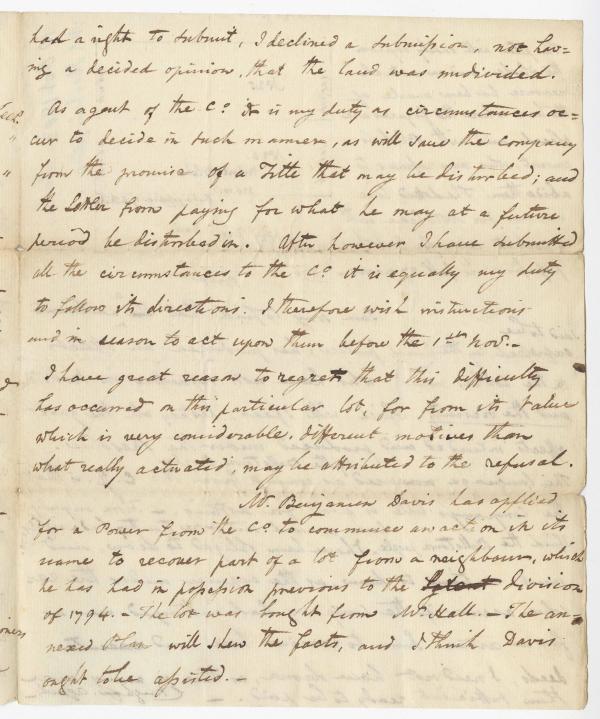 had a right to submit, I declined a submission, not hav=
ing a decided opinion, that the land was undivided.
As agent of the Co. it is my duty as circumstances oc=
cur to decide in such manner, as will save the Company
from the promise of a Title that may be disturbed; and
the Settler from paying for what he may at a future
period be disturbed in. After however I have submitted
all the circumstances to the Co. it is equally my duty
to follow its directions. I therefore wish instructions
and in season to act upon them before the 1st Nov.-
I have great reason to regret that this difficulty
has occurred on this particular lot, for from its value
which is very considerable, different motives than
what really actuated, may be attributed to the refusal.
Mr. Benjamin Davis has applied
for a Power from the Co. to commence an action in its
name to recover part of a lot from a neighbour, which
he has had in possession previous to the division
of 1794. - The lot was bought from Mr. Hall. - The an=
nexed Plan will shew the facts, and I think Davis
ought to be assisted. -